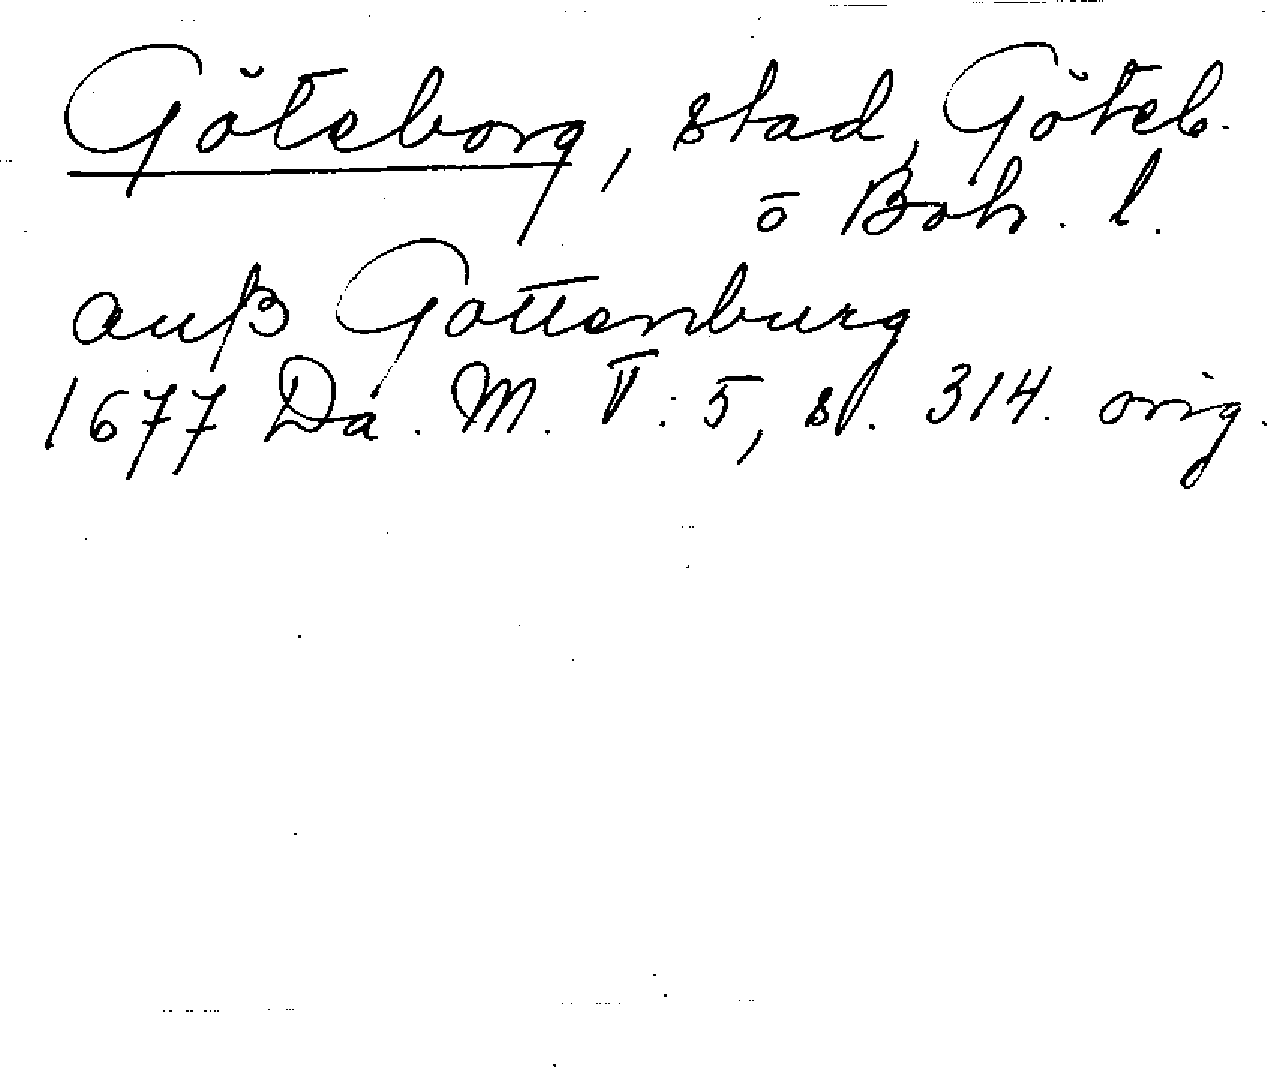 Göteborg, stad, Göteb.
o Boh. l.
auß Gottenburg
1677 Da. M. V: 5, s. 314. orig.